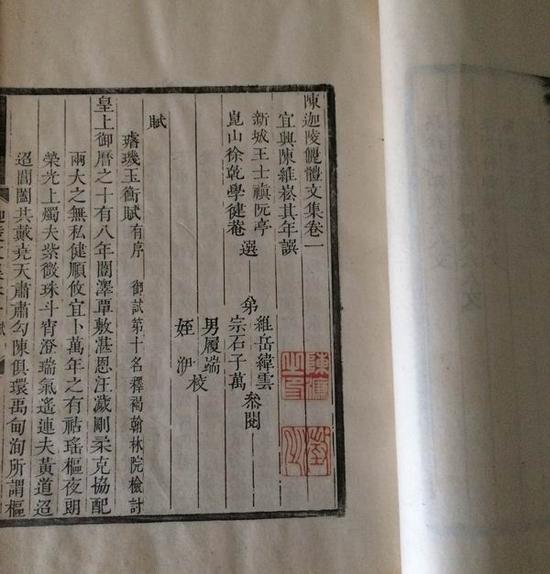 陳迦陵儷體文集卷一
宜興陳維崧其年譔
新城王士禛阮亭
崑山徐乾學健菴 選
弟 維岳緯雲
宗石子萬 叅閱
男履端
姪 洢 校
賦
璿璣玉衡賦 有序 御試第十名釋褐翰林院檢討
皇上御曆之十有八年闓澤覃敷湛恩汪濊剛柔克協配
兩大之無私健順攸宜卜萬年之有祜瑤樞夜朗
榮光上屬夫紫微珠斗宵澄瑞氣遙連夫黃道迢
迢閶闔共戴堯天肅肅勾陳俱環禹甸洵所謂樞